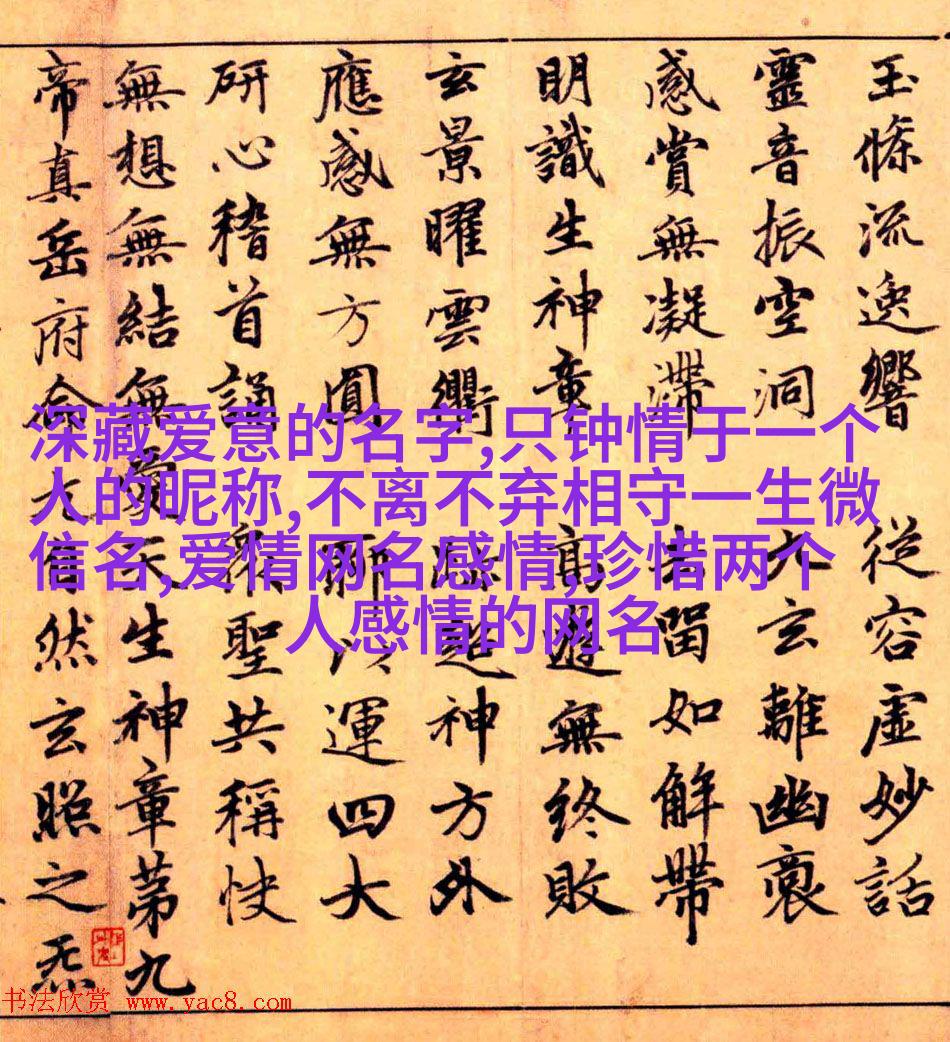 玉條流逸響 從容虛妙話
靈音振空洞 玄離幽
感賞無凝滯 去留如解帶
明識生神章 高遊無終敗
玄景曜雲衢 超神方外
應感無方圓 聊以運四大
研心稽首誦 眾聖共稱快
無想無結無愛天生神章第九
帝真岳府命元自然玄照之炁
深藏爱意的名字,只钟情于一个
人的昵称,不离不弃相守一生微
信名,爱情网名感情,珍惜两个
人感情的网名
书法欣赏 www.yac8.com